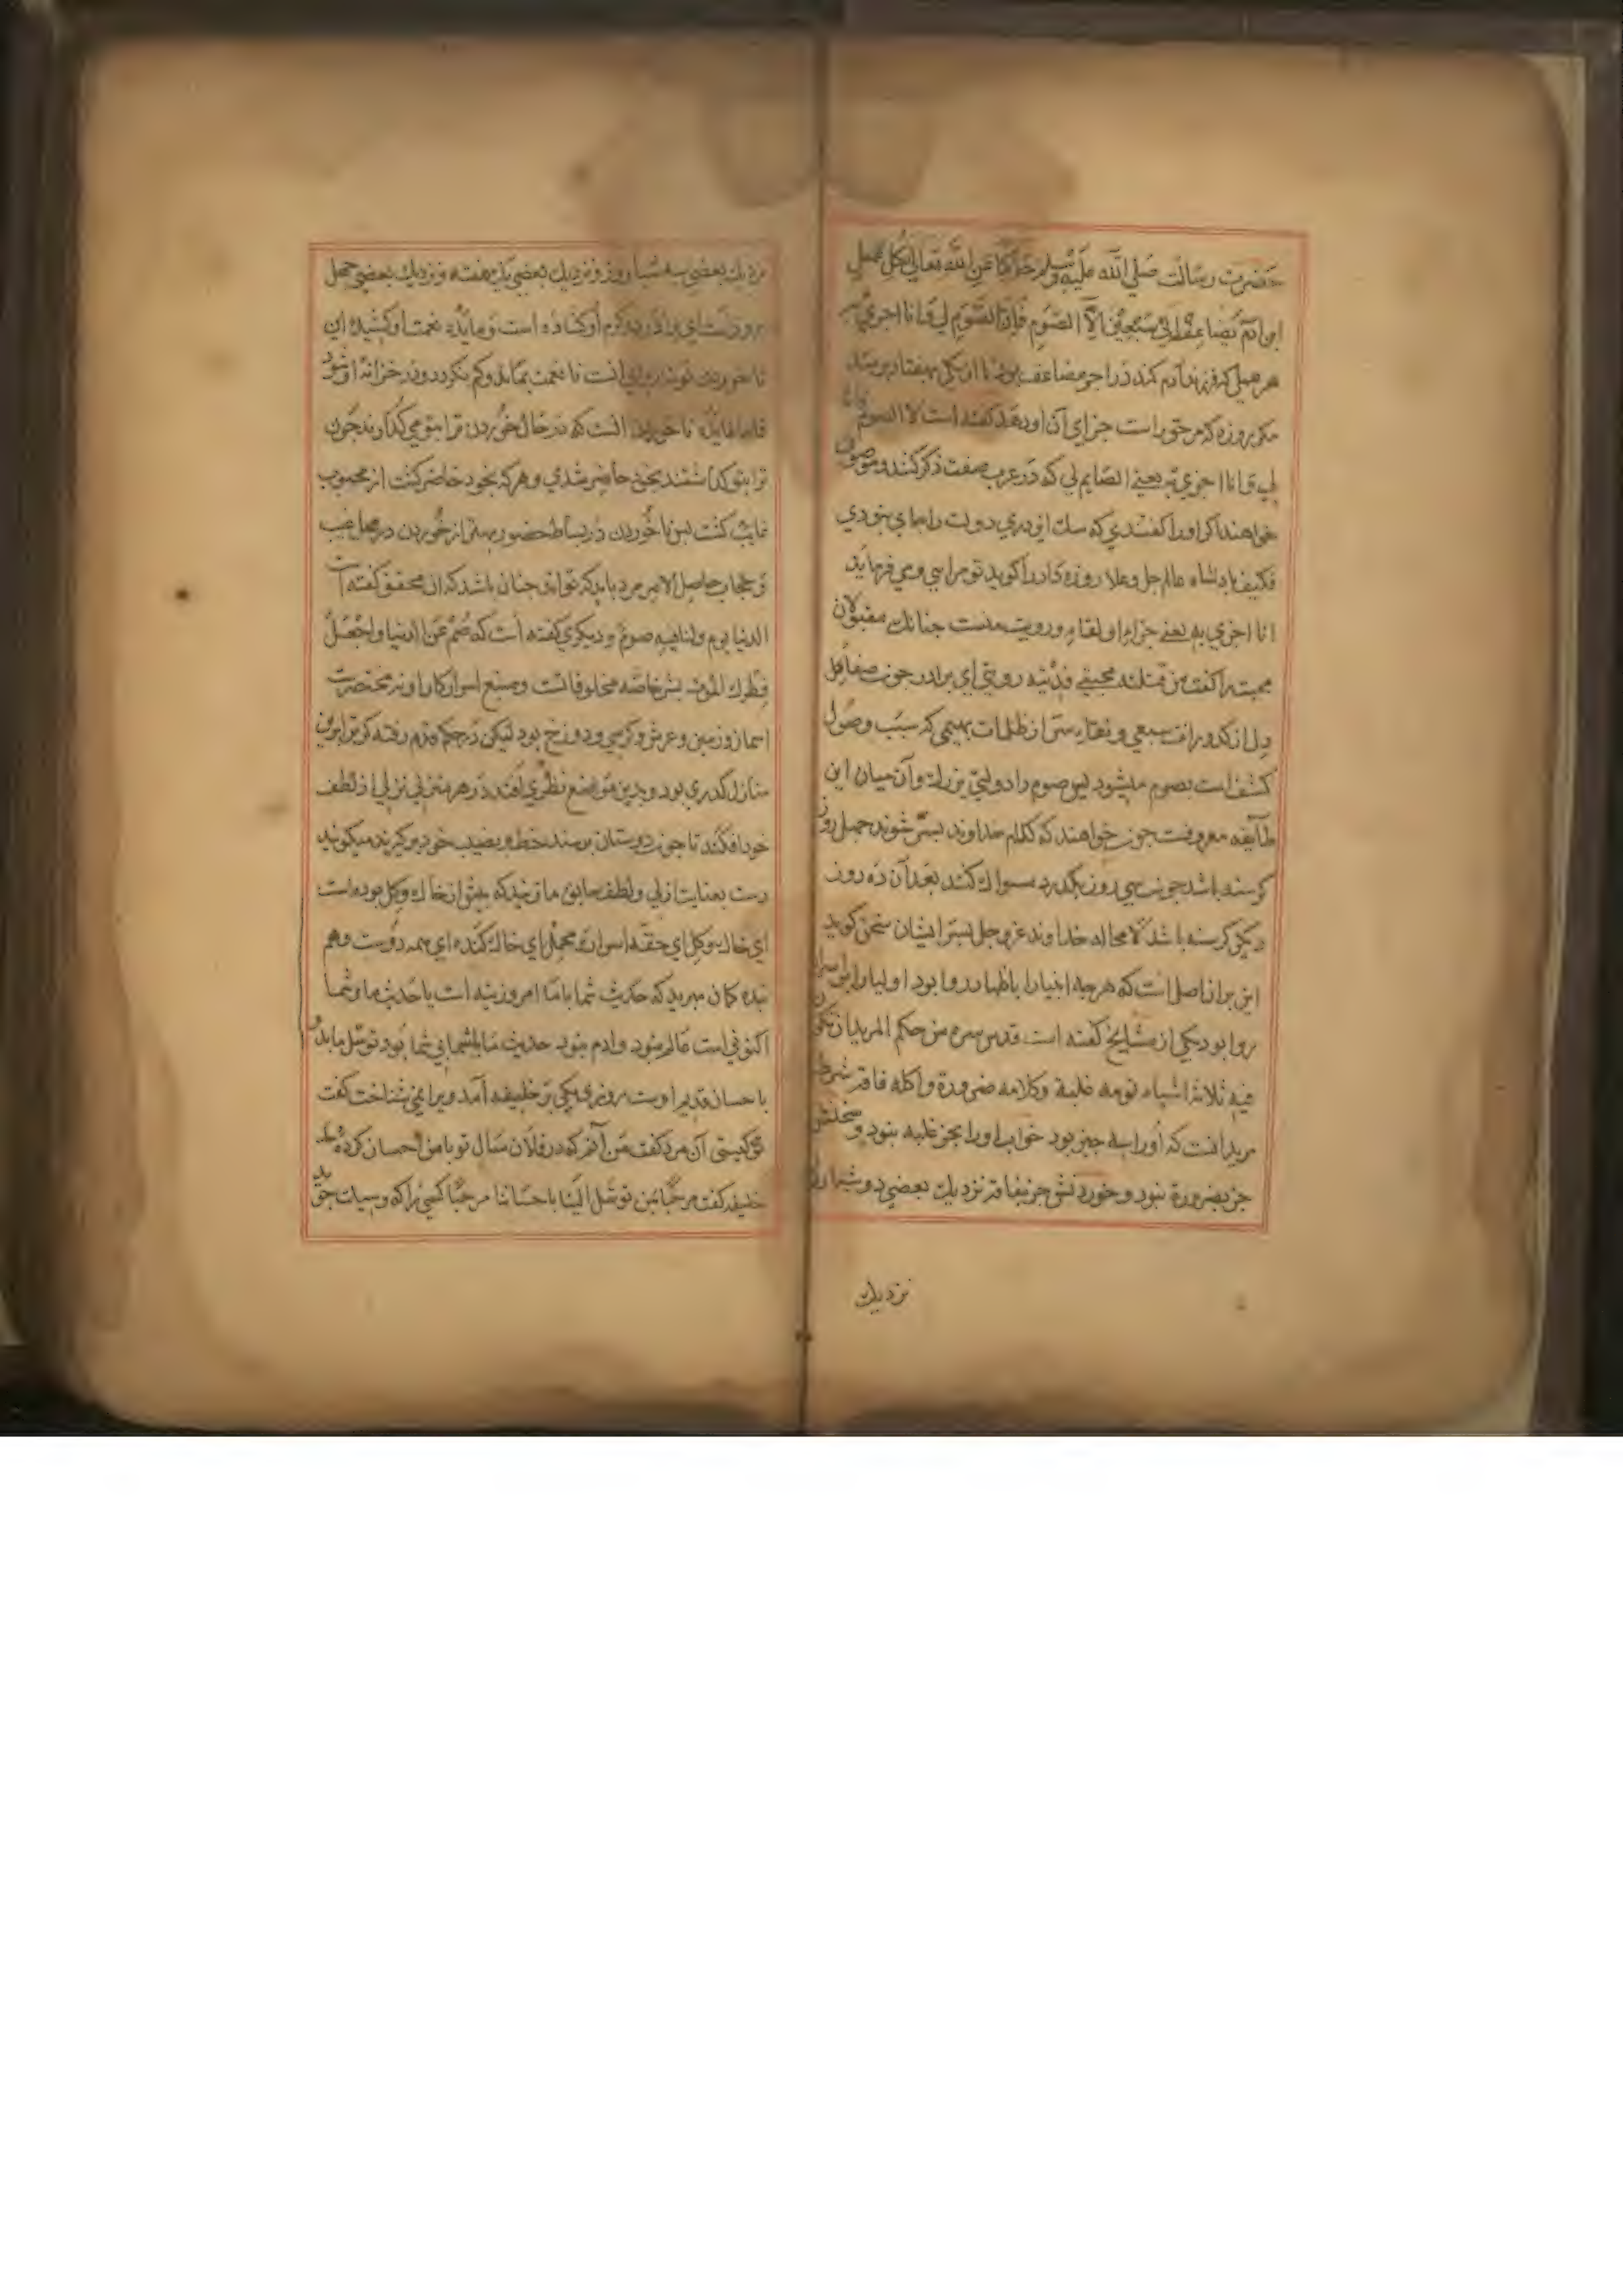 حضرت رسالت صلي الله عليه وسلم عن الله تعالي كل عمل
ابن ادم يضاعف الي سبعين الا الصوم فان الصوم لي و انا اجزي به
هر عمل كه فرزند ادم كند در اجر مضاعف بود تا از يكي بهفتاد برسد
مكر روزه كه مرحقراست جزاي آن او دهد كفته است الا الصوم
لي و انا اجزي به يعني الصايم لي كه در عرب صفت ذكر كنند و موصوف
خواهند اكر او را كفتندي كه سك اين دري دولت را جاي بنودي
فكيف بادشاه عالم جل و علا روزه دار را كويد تو مرايي و مي فرمايد
انا اجزي به يعني جزاء او لقاء و رويت منست جنانك مقبولان
محبت را كفت من قتلته محبتي فديته رويتي اي برادر جون صفاء
دل از كدورات سبعي و نقاء سر از ظلمات بهيمي كه سبب وصول
كشف است بصوم ميشود بس صوم را دولتي بزرك و آن ميان اين
طايفه معروفست جون خواهند كه كلام خداوند بسر شنوند جهل روز
كرسنه باشد جون سي روز بكذرد مسواك كند بعد آن ده روز
ديكر كرسنه باشد لا محاله خداوند عز و جل بسر ايشان سخن كويد
اين بران اصل است كه هرجه انبيا را باظهار روا بود اوليا را باسرار
روا بود يكي از مشايخ كفته است قدس سره من حكم المريد ان يكون
فيه ثلاثة اشياء نومه غلبة و كلامه ضرورة و اكله فاقة شرط
مريد آنست كه او را سه جيز بود خواب او را بجز غلبه بنود و سخنش
جز بضرورة بنود و خوردنش جز بفاقه نزديك بعضي دو شبانروز
نزديك
نزديك بعضي سه شباروز و نزديك بعضي يك هفته و نزديك بعضي جهل
روزست اي برادر در كرم او كشاده است و مايده نعمت او كشيده اين
ناخوردن تو نه براي انست تا نعمت بماند و كم نكردد و در خزانه او شود
فاما فايده ناخوردن انست كه در حال خوردن ترا بتو مي كذارند جون
ترا بتو كذاشتند بخود حاضر شدي و هر كه بخود حاضر كشت از محبوب
غايب كشت بس ناخوردن در بساط حضور بهتر از خوردن در محل غيب
و حجاب حاصل الامر مرد بايد كه تواند جنان باشد كه ان محقق كفته است
الدنيا يوم و لنا فيه صوم و ديكري كفته است كه صم عن الدنيا و اجعل
فطرك الموت بشر خاصه مخلوقانست و منبع اسرار كار او نه مختصرست
اسمان و زمين و عرش و كرسي و دوزخ بود ليكن در حكم قدم رفته كه ترا برين
منازل كذري بود و بدين مواضع نظري افتد در هر منزلي نزلي از لطف
خود افكند تا جون دوستان برسند حظ و نصيب خود بركيرند ميكويند
دست بعنايت ازلي و لطف سابق ما زنيد كه بيش از خاك و كل بوده است
اي خاك و كل اي حقه اسرار و محمل اي خاك كنده اي همه دوست و هم
بنده كمان مبريد كه حديث شما با ما امروزينه است يا حديث ما و شما
اكنوني است عالم بنود و ادم بنود حديث ما با شما بي شما بود توسل ما بدو
باحسان قديم اوست روزي يكي بر خليفه آمد ويرا نمي شناخت كفت
تو كيستي آن مرد كفت من آنم كه در فلان سال تو با من احسان كرده
خليفه كفت مرحبا بمن توسل الينا باحساننا مرحبا كسي را كه وسيلت جويد